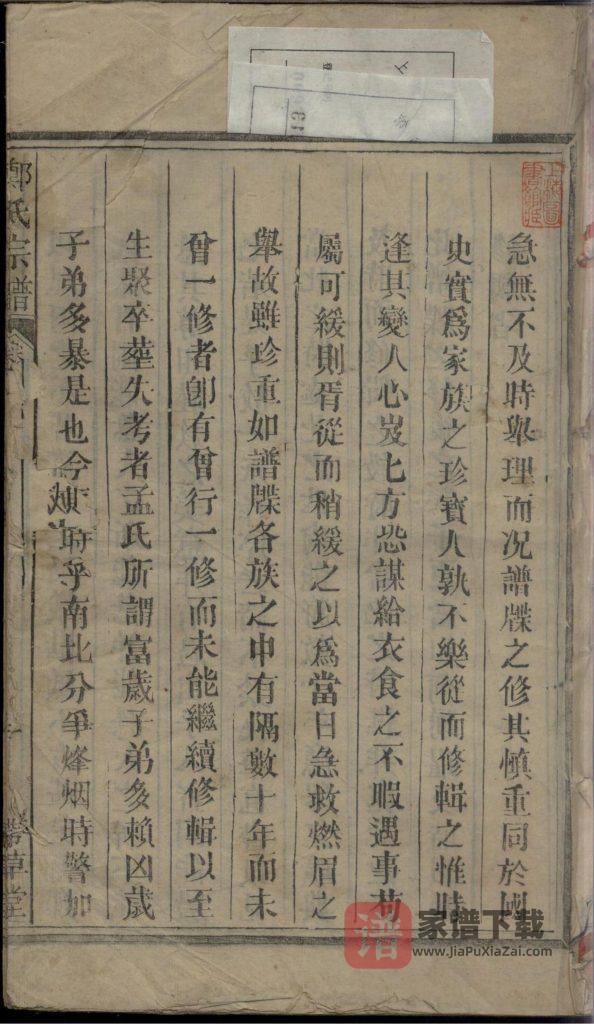 急無不及時舉理而况譜牒之修其慎重同於國
史實爲家族之珍寶人孰不樂從而修輯之惟時
逢其變人心岌七方恐謀給衣食之不暇遇事苟
屬可緩則胥從而稍緩之以爲當日急救燃眉之
舉故雖珍重如譜牒各族之中有隔數十年而未
曾一修者卽有曾行一修而未能繼續修輯以至
生聚卒塟失考者孟氏所謂富歲子弟多賴凶歲
子弟多暴是也今 時乎南北分爭烽烟時警加
鄭氏宗譜 卷
草堂
谱 家谱下载
www.JiaPuXiaZai.com
13